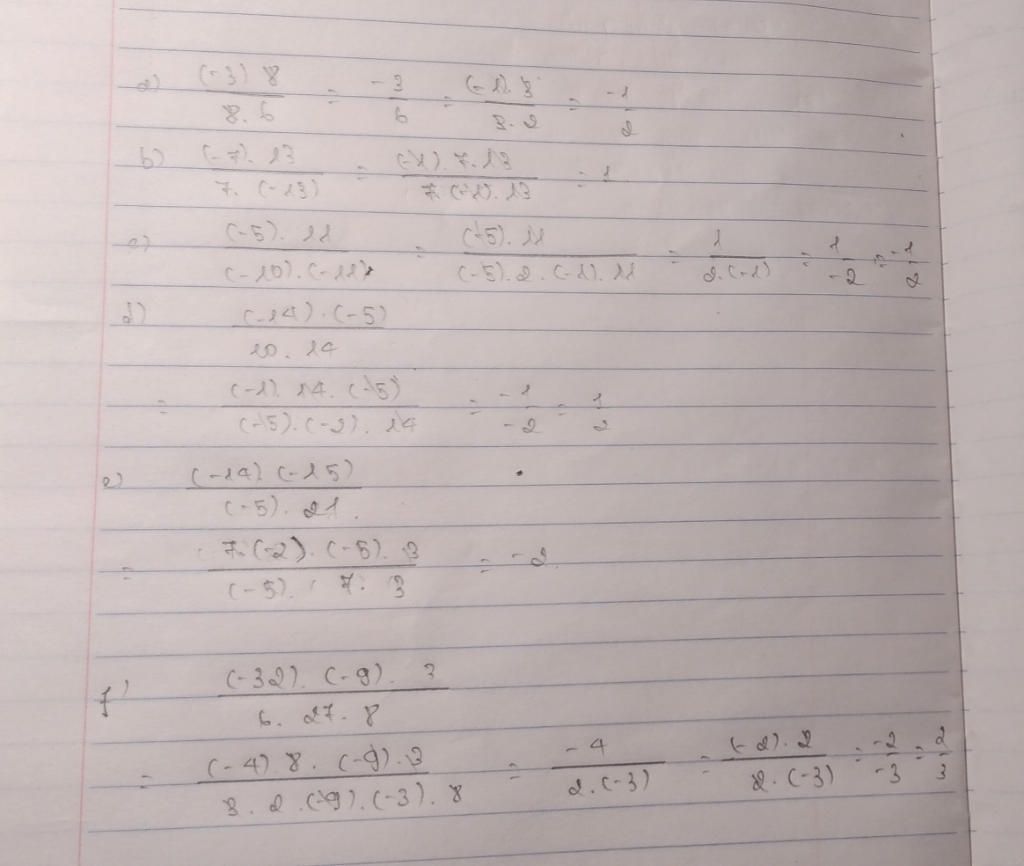 a) (-3) 8 / 8. 6 = -3 / 6 = (-1). 3 / 3. 2 = -1 / 2
b) (-7). 13 / 7. (-13) = (-1). 7. 13 / 7. (-1). 13 = 1
c) (-5). 11 / (-10). (-11) = (-5). 11 / (-5). 2. (-1). 11 = 1 / 2. (-1) = 1 / -2 = -1 / 2
d) (-14). (-5) / 10. 14
= (-1). 14. (-5) / (-5). (-2). 14 = -1 / -2 = 1 / 2
e) (-14) (-15) / (-5). 21.
= 7. (-2). (-5). 3 / (-5). 7. 3 = -2.
f) (-32). (-9). 3 / 6. 27. 8
= (-4) 8. (-9). 3 / 3. 2. (-9). (-3). 8 = -4 / 2. (-3) = (-2). 2 / 2. (-3) = -2 / -3 = 2 / 3